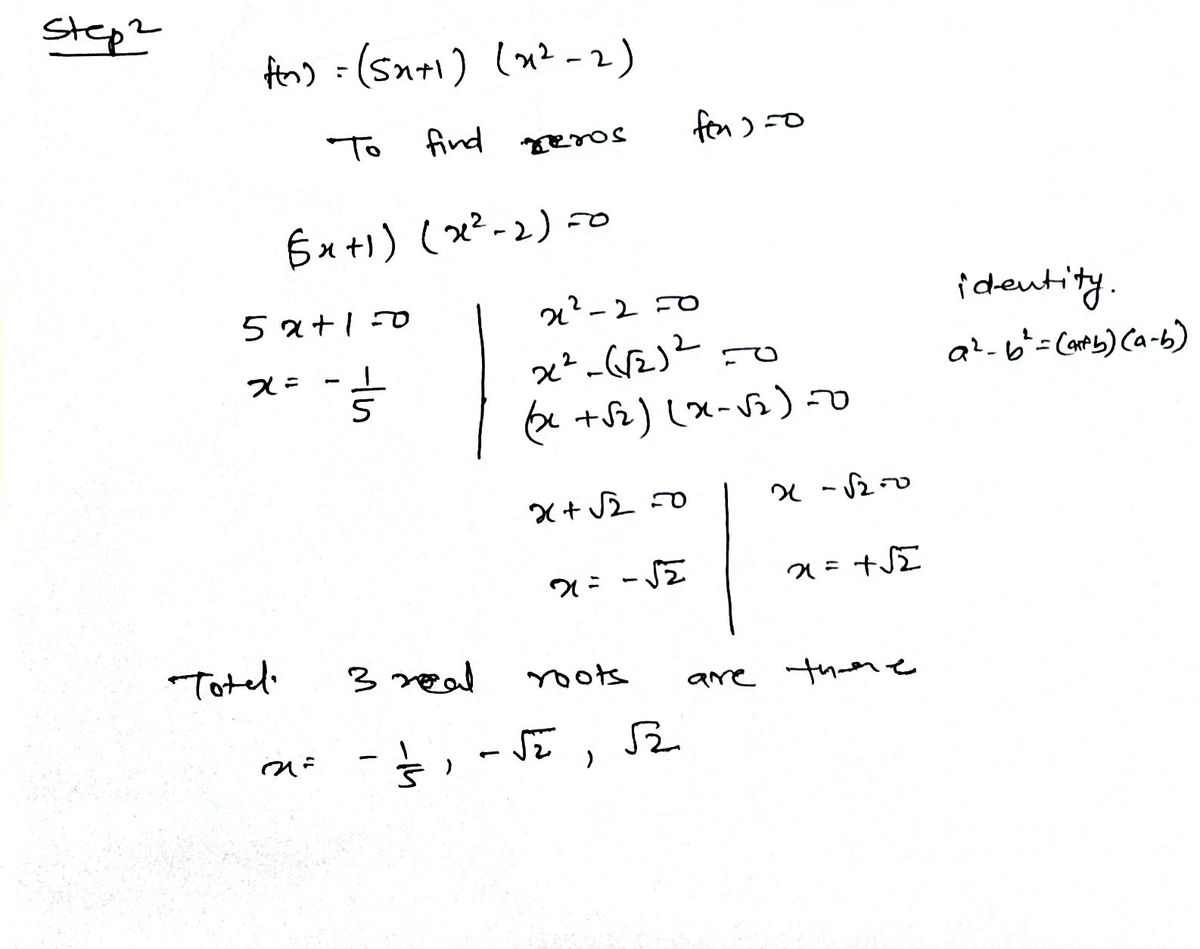 Step 2
f(x) = (5x+1) (x² - 2)
To find zeros f(x) = 0
(5x+1) (x² - 2) = 0
5x+1 = 0
x = - 1/5
x² - 2 = 0
x² - (√2)² = 0
(x + √2) (x - √2) = 0
identity.
a² - b² = (a+b) (a-b)
x + √2 = 0
x = - √2
x - √2 = 0
x = + √2
Total. 3 real roots are there
x = - 1/5, - √2, √2